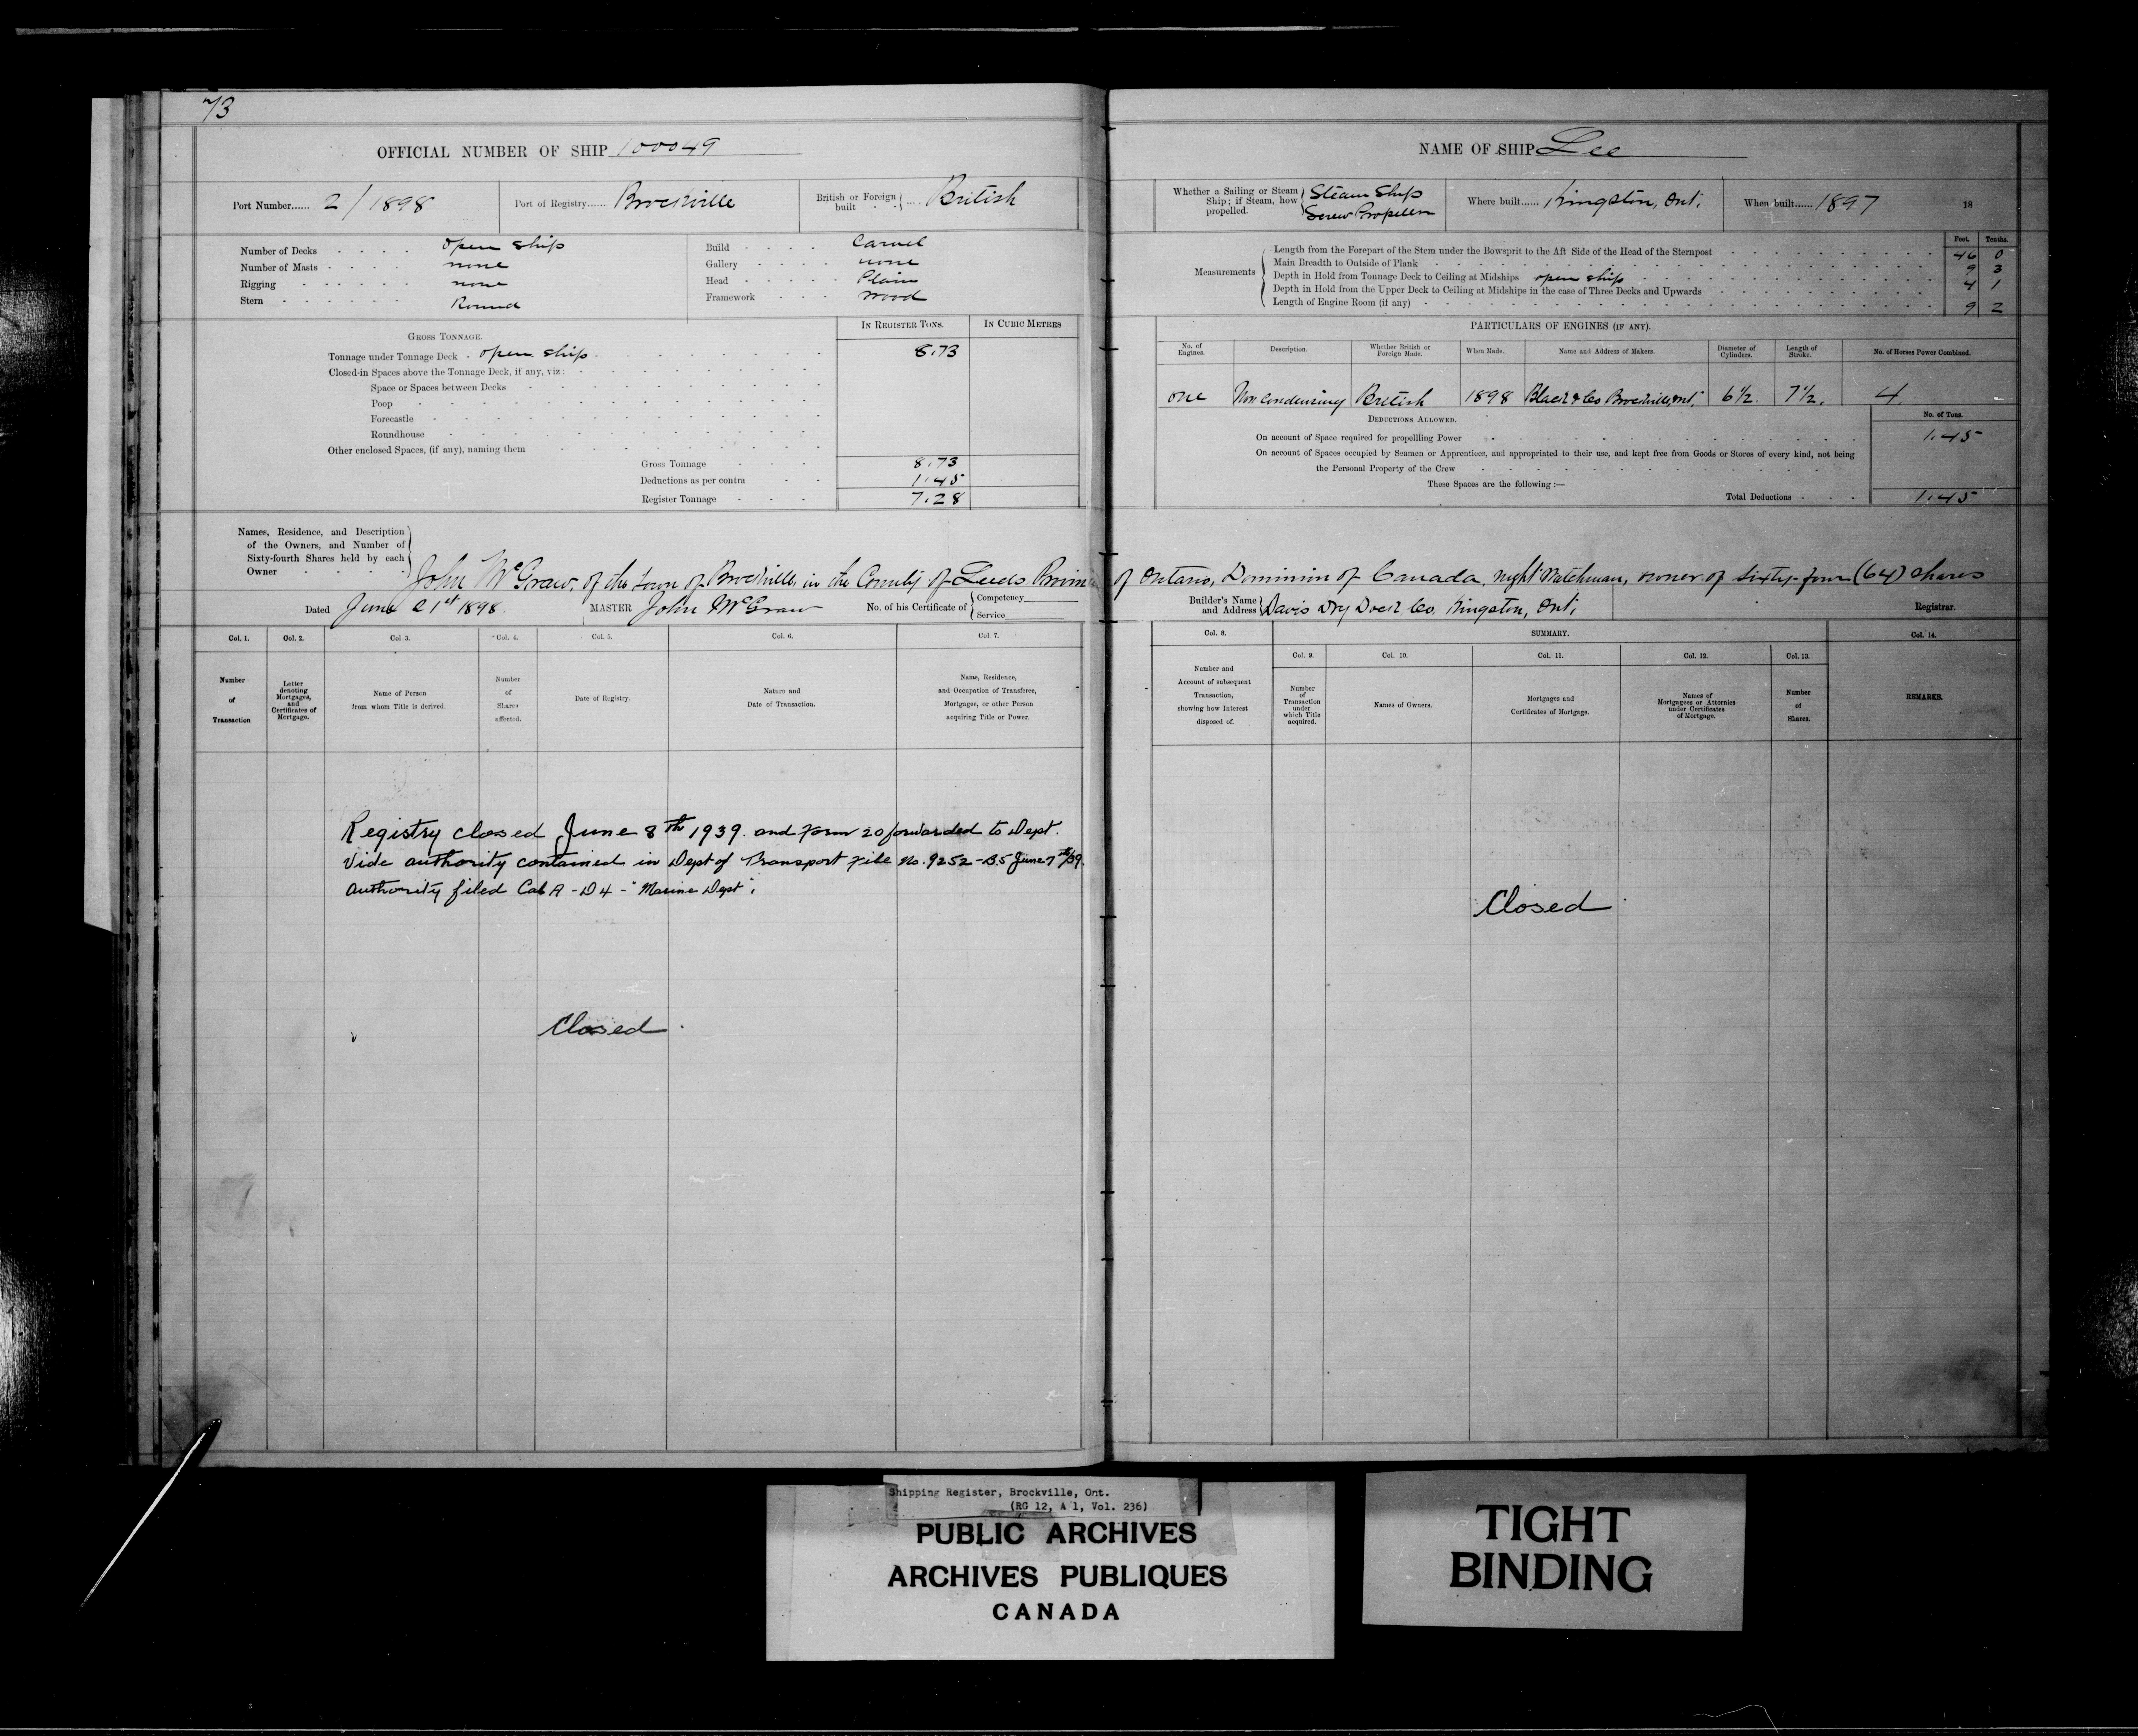 73
OFFICIAL NUMBER OF SHIP 100049
Port Number...... 2/1898
Port of Registry...... Brockville
British or Foreign built - - } .... British
Number of Decks - - - - open ship
Number of Masts - - - - none
Rigging - - - - - none
Stern - - - - - - Round
Build - - - - Carvel
Gallery - - - - none
Head - - - - Plain
Framework - - - wood
GROSS TONNAGE.
IN REGISTER TONS.
IN CUBIC METRES
Tonnage under Tonnage Deck - open ship 8.73
Closed-in Spaces above the Tonnage Deck, if any, viz:
Space or Spaces between Decks
Poop
Forecastle
Roundhouse
Other enclosed Spaces, (if any), naming them
Gross Tonnage 8.73
Deductions as per contra 1.45
Register Tonnage 7.28
Names, Residence, and Description
of the Owners, and Number of
Sixty-fourth Shares held by each
Owner
John McGraw, of the town of Brockville, in the County of Leeds Provin
Dated June 21st 1898.
MASTER John McGraw
No. of his Certificate of { Competency
Service
Col. 1.
Col. 2.
Col. 3.
Col. 4.
Col. 5.
Col. 6.
Col. 7.
Number of Transaction
Letter denoting Mortgages, and Certificates of Mortgage.
Name of Person from whom Title is derived.
Number of Shares affected.
Date of Registry.
Nature and Date of Transaction.
Name, Residence, and Occupation of Transferee, Mortgagee, or other Person acquiring Title or Power.
Registry closed June 8th 1939. and Form 20 forwarded to Dept.
Vide authority contained in Dept of Transport File No. 9252-B5 June 7th/39.
Authority filed Cab A - D4 - "Marine Dept".
Closed.
NAME OF SHIP Lee
Whether a Sailing or Steam Ship; if Steam, how propelled. } Steam Ship
Screw Propeller
Where built...... Kingston, Ont.
When built...... 1897
18
Feet. Tenths.
Measurements
Length from the Forepart of the Stem under the Bowsprit to the Aft Side of the Head of the Sternpost 46 0
Main Breadth to Outside of Plank 9 3
Depth in Hold from Tonnage Deck to Ceiling at Midships open ship 4 1
Depth in Hold from the Upper Deck to Ceiling at Midships in the case of Three Decks and Upwards
Length of Engine Room (if any) 9 2
PARTICULARS OF ENGINES (IF ANY).
No. of Engines.
Description.
Whether British or Foreign Made.
When Made.
Name and Address of Makers.
Diameter of Cylinders.
Length of Stroke.
No. of Horses Power Combined.
one Non condensing British 1898 Black & Co Brockville, Ont. 6½. 7½. 4.
DEDUCTIONS ALLOWED.
No. of Tons.
On account of Space required for propellling Power 1.45
On account of Spaces occupied by Seamen or Apprentices, and appropriated to their use, and kept free from Goods or Stores of every kind, not being
the Personal Property of the Crew
These Spaces are the following :—
Total Deductions - - - 1.45
of Ontario, Dominion of Canada, night Watchman, owner of sixty-four (64) shares
Builder's Name and Address } Davis Dry Dock Co. Kingston, Ont.
Registrar.
Col. 8.
SUMMARY.
Col. 14.
Col. 9.
Col. 10.
Col. 11.
Col. 12.
Col. 13.
Number and Account of subsequent Transaction, showing how Interest disposed of.
Number of Transaction under which Title acquired.
Names of Owners.
Mortgages and Certificates of Mortgage.
Names of Mortgagees or Attornies under Certificates of Mortgage.
Number of Shares.
REMARKS.
Closed
Shipping Register, Brockville, Ont.
(RG 12, A 1, Vol. 236)
PUBLIC ARCHIVES
ARCHIVES PUBLIQUES
CANADA
TIGHT
BINDING